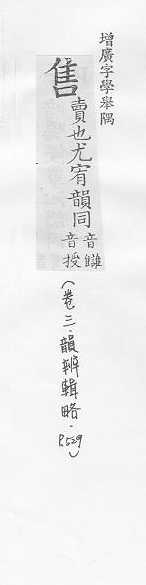 增廣字學舉隅
售
賣也尤宥韻同
音讎
音授
(卷三.韻辨輯略.P.529)